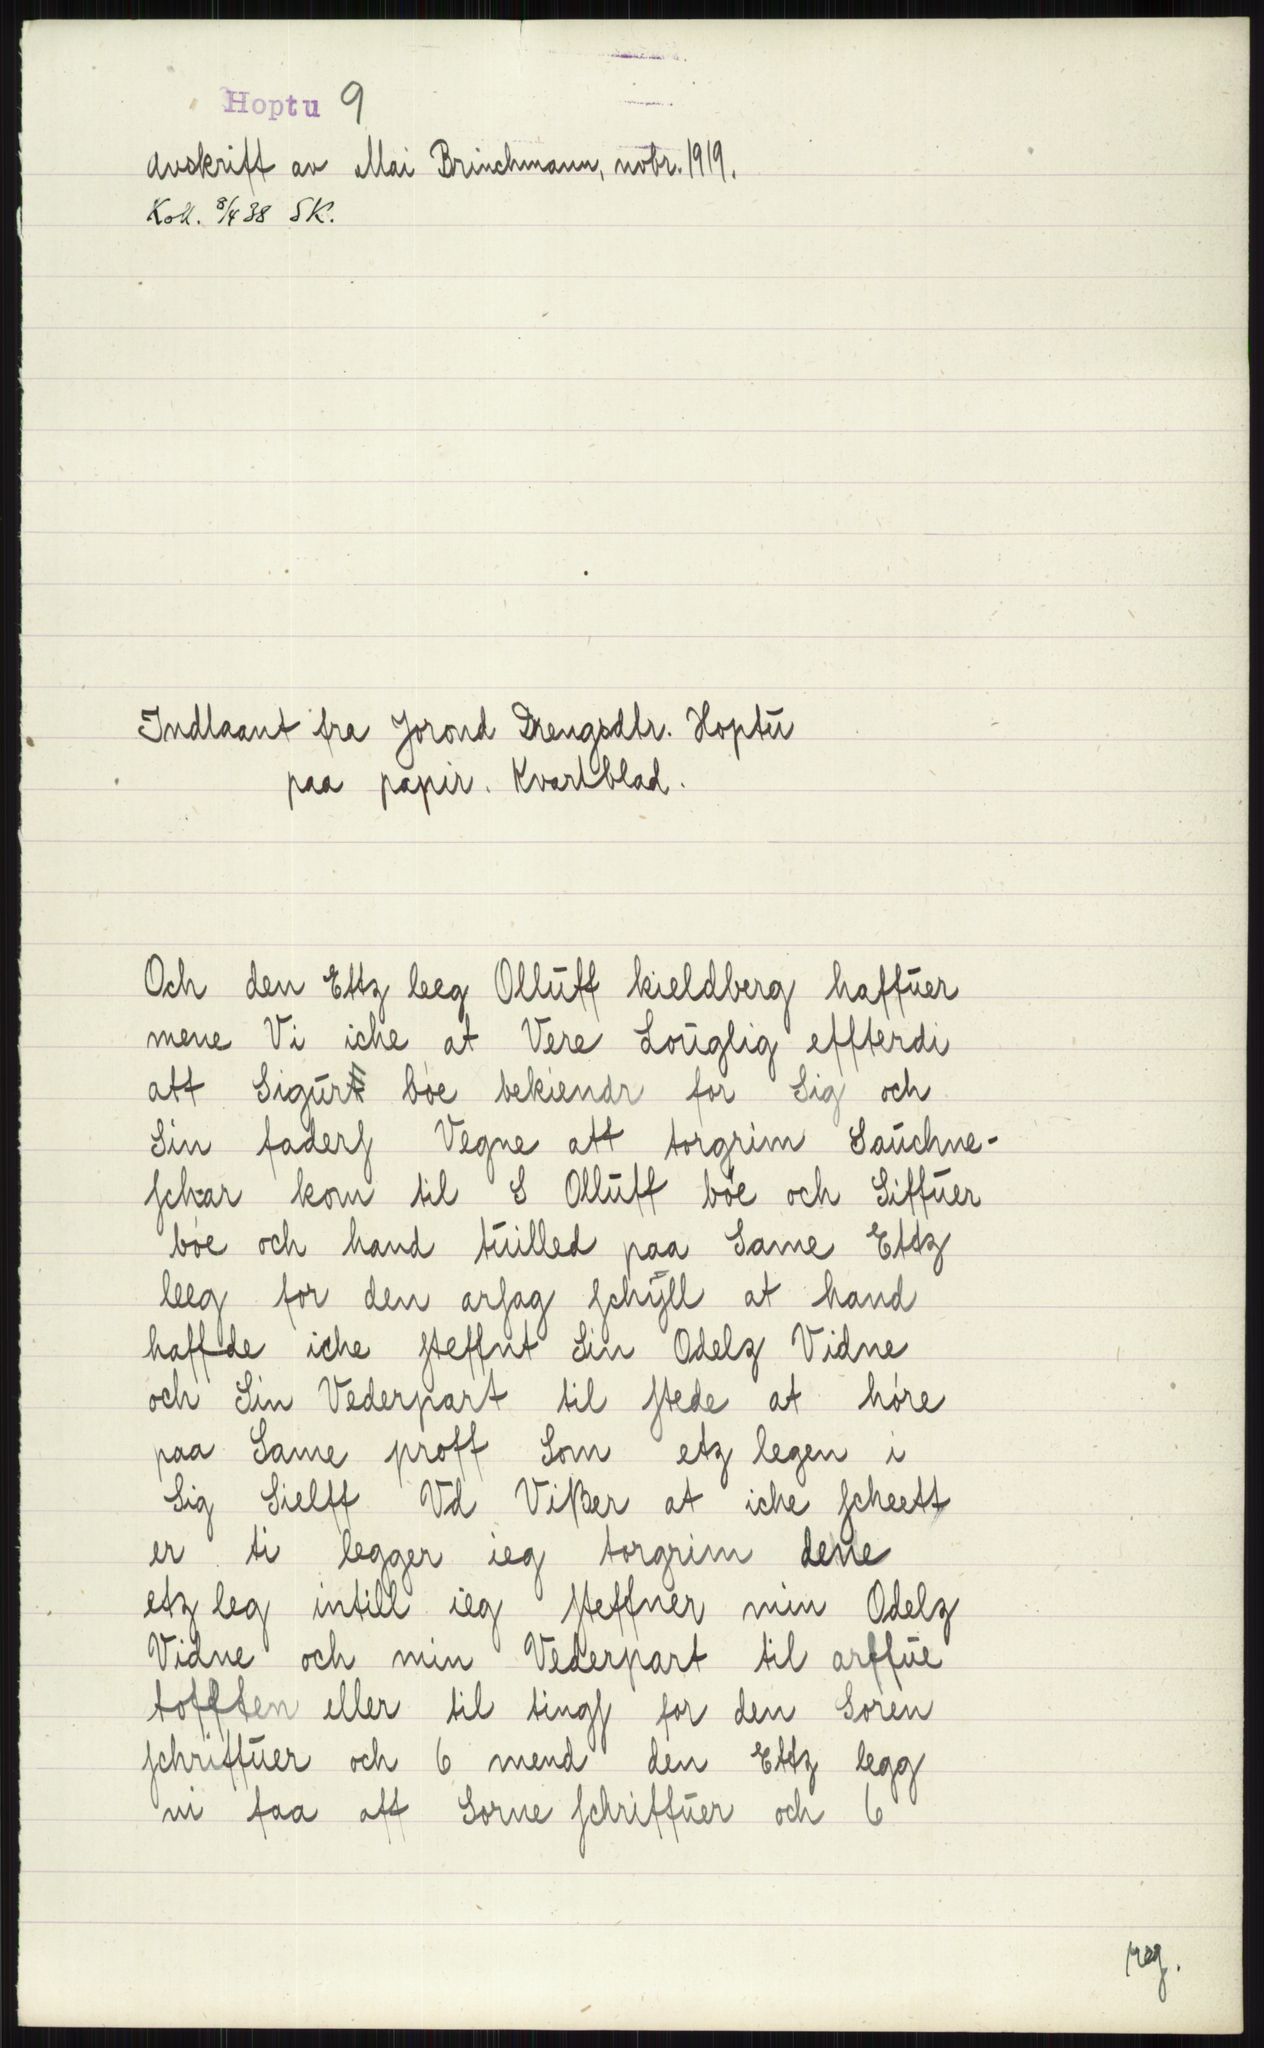 Hoptu 9
Avskrift av Mai Brinchmann, nobr. 1919.
Koll. 8/4 38 SK.
Indlaant fra Jorond Drengsdtr. Hoptü
paa papir. Kvartblad.
Och den Ettz leeg Ollüff kieldberg haffüer
mene Vi iche at Vere Loüglig effterdi
att Sigürt böe bekiendr for Sig och
Sin faderſ Vegne att torgrim Saüchne-
ſchar kom til S Ollüff böe och Siffüer
böe och hand tüilled paa Same Ettz
leeg for den arſag ſchÿll at hand
haffde iche ſteffnt Sin Odelz Vidne
och Sin Vederpart til ſtede at höre
paa Same proff Som etz legen i
Sig Sielff Vd Vißer at iche ſcheett
er ti legger ieg torgrim dene
etz leg intill ieg ſteffner min Odelz
Vidne och min Vederpart til arffüe
tofften eller til tingſ for den Soren
ſchriffüer och 6 mend den Ettz legg
vi faa aff Sorne ſchriffüer och 6
reg.